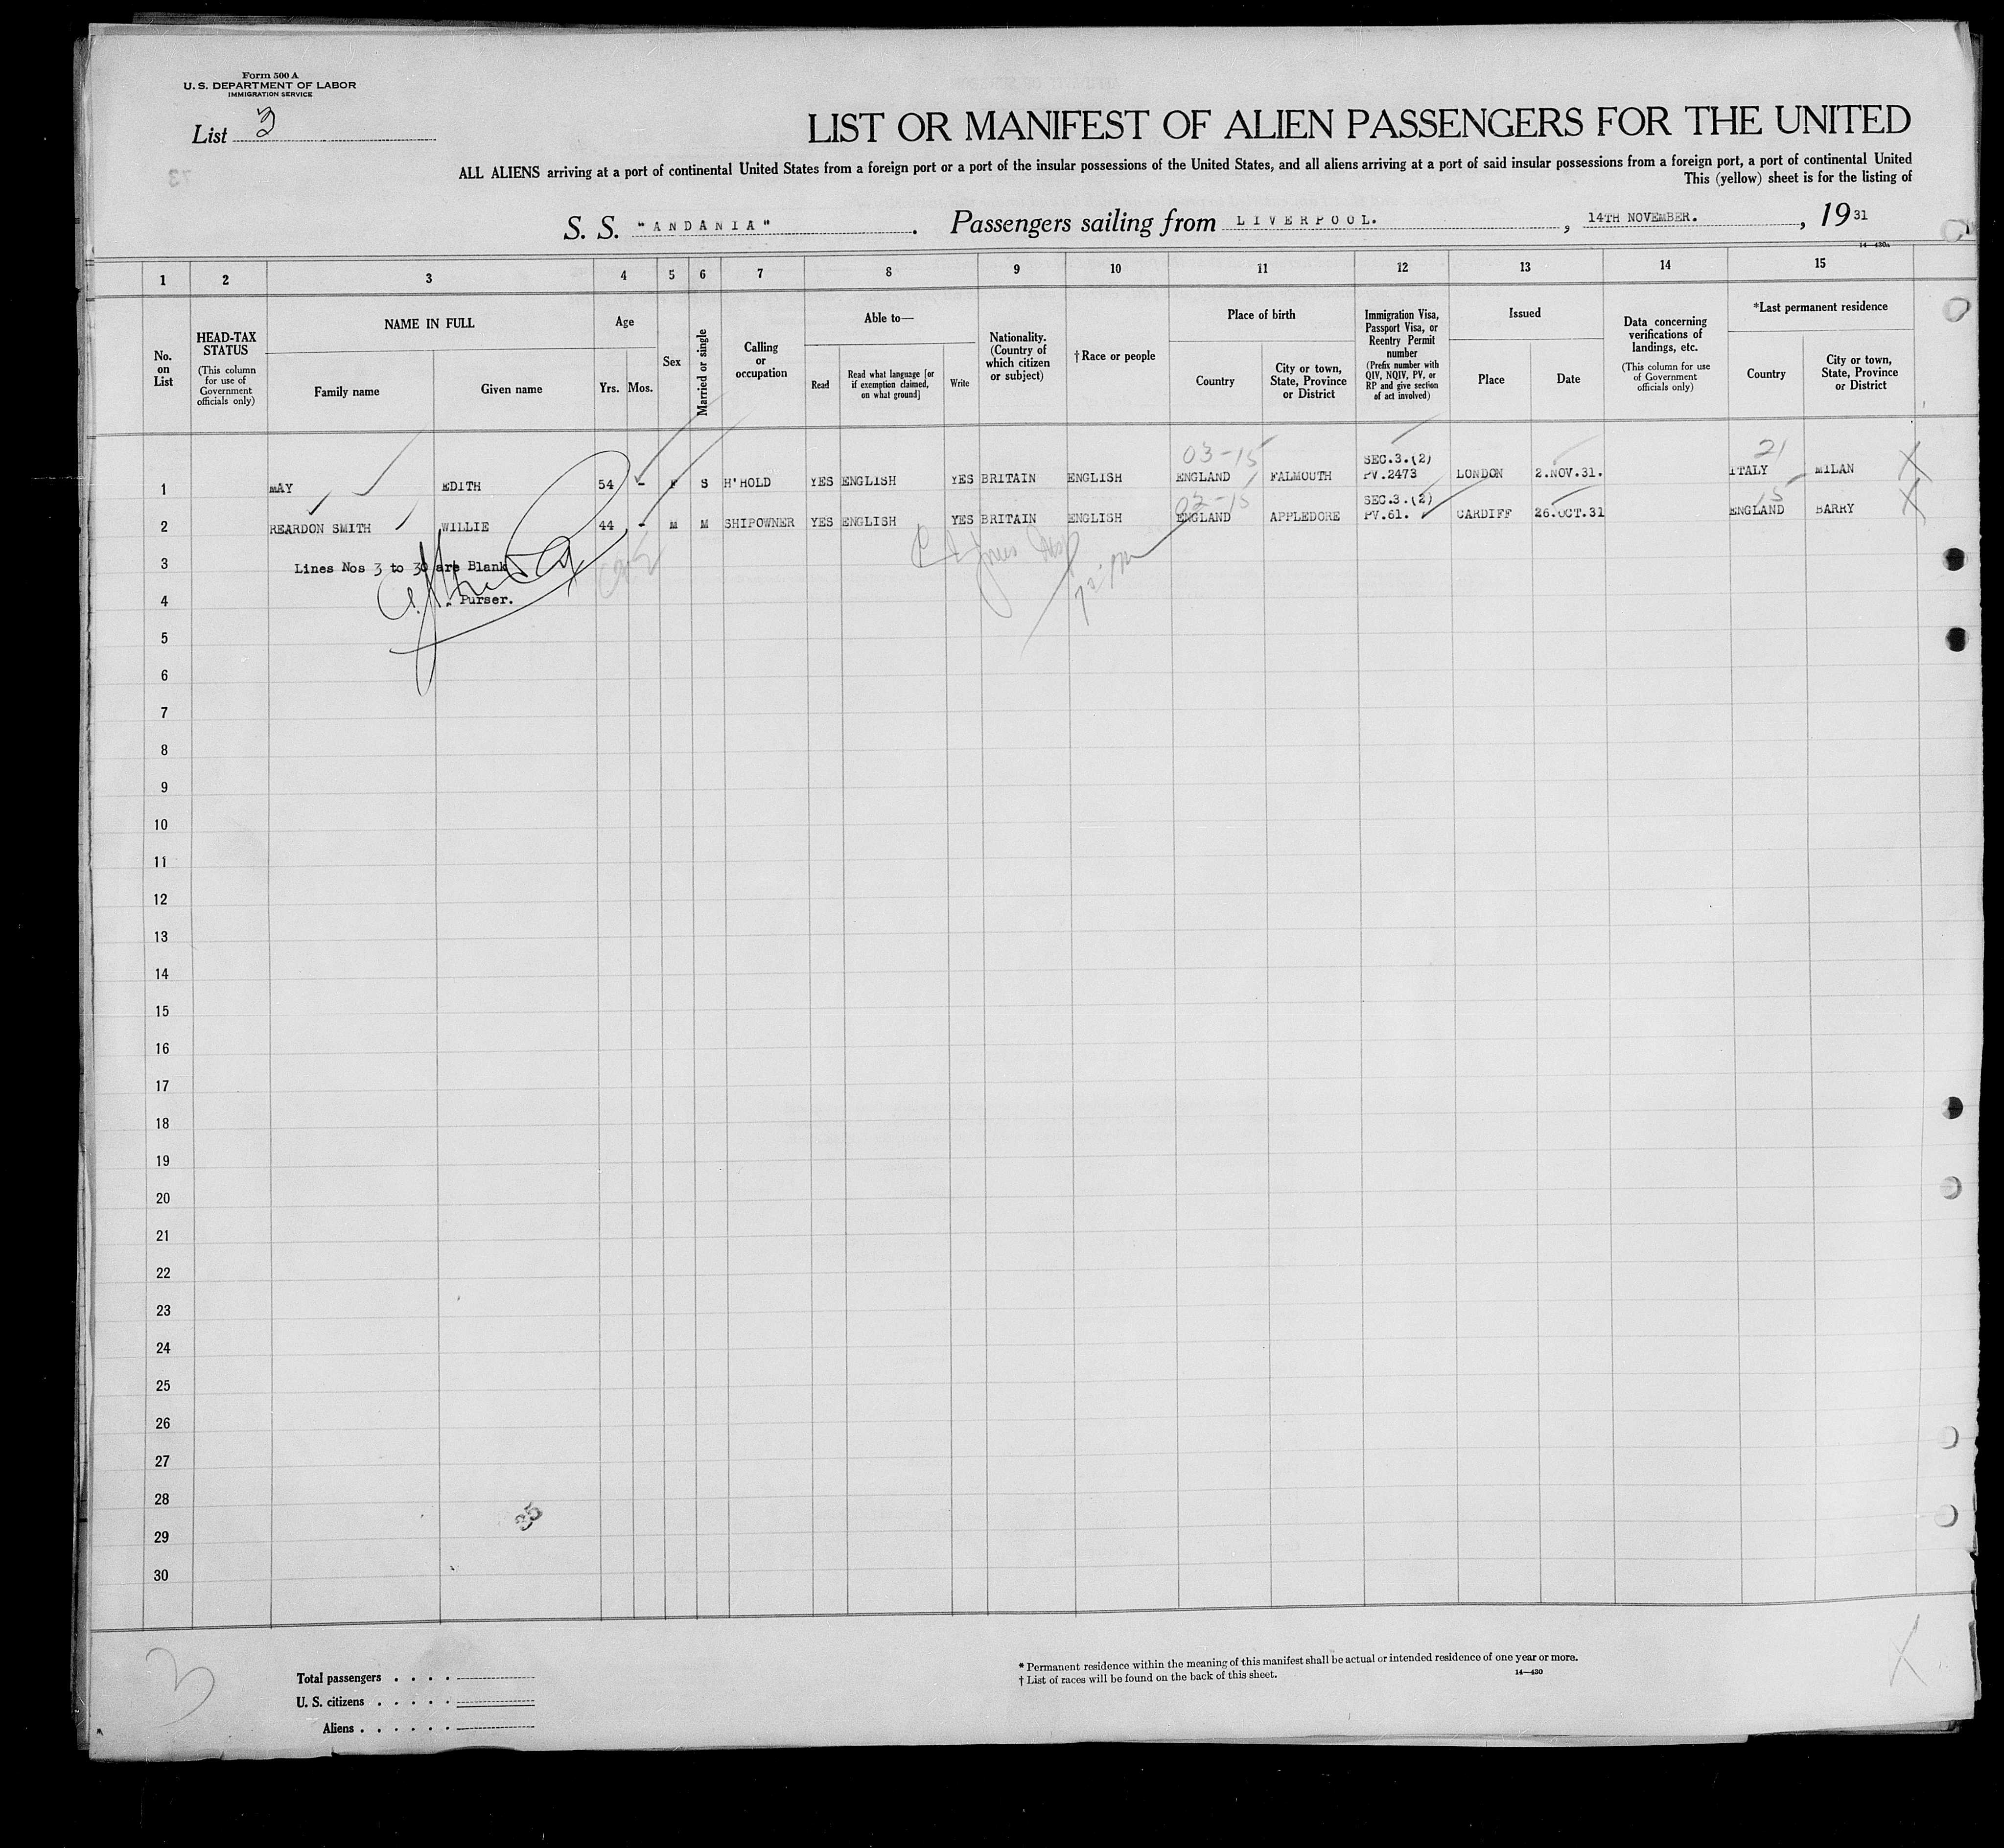 Form 500 A
U. S. DEPARTMENT OF LABOR
IMMIGRATION SERVICE
List 3
LIST OR MANIFEST OF ALIEN PASSENGERS FOR THE UNITED
ALL ALIENS arriving at a port of continental United States from a foreign port or a port of the insular possessions of the United States, and all aliens arriving at a port of said insular possessions from a foreign port, a port of continental United
This (yellow) sheet is for the listing of
S. S. "ANDANIA" . Passengers sailing from LIVERPOOL. , 14TH NOVEMBER. , 19 31
14—430a
1 2 3 4 5 6 7 8 9 10 11 12 13 14 15
No. on List
HEAD-TAX STATUS
(This column for use of Government officials only)
NAME IN FULL
Family name
Given name
Age
Yrs. Mos.
Sex
Married or single
Calling or occupation
Able to—
Read
Read what language [or if exemption claimed, on what ground]
Write
Nationality. (Country of which citizen or subject)
† Race or people
Place of birth
Country
City or town, State, Province or District
Immigration Visa, Passport Visa, or Reentry Permit number
(Prefix number with QIV, NQIV, PV, or RP and give section of act involved)
Issued
Place
Date
Data concerning verifications of landings, etc.
(This column for use of Government officials only)
*Last permanent residence
Country
City or town, State, Province or District
03-15 21
SEC.3.(2)
1 MAY EDITH 54 - F S H'HOLD YES ENGLISH YES BRITAIN ENGLISH ENGLAND FALMOUTH PV.2473 LONDON 2.NOV.31. ITALY MILAN X
02-15 SEC.3.(2) 15
2 REARDON SMITH WILLIE 44 - M M SHIPOWNER YES ENGLISH YES BRITAIN ENGLISH ENGLAND APPLEDORE PV.61. CARDIFF 26.OCT.31 ENGLAND BARRY X
3 Lines Nos 3 to 30 are Blank
4 Purser.
5
6
7
8
9
10
11
12
13
14
15
16
17
18
19
20
21
22
23
24
25
26
27
28
29
30
3
Total passengers . . . .
U. S. citizens . . . . .
Aliens . . . . . .
* Permanent residence within the meaning of this manifest shall be actual or intended residence of one year or more.
† List of races will be found on the back of this sheet.
14—430
X